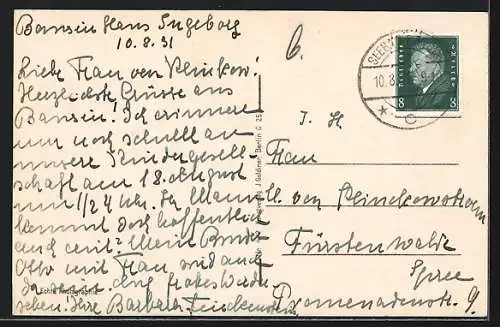 Bansin Haus Ingeborg
10.8.31
Liebe Frau von Klinckow!
Herzlichste Grüsse aus
Bansin! Ich erinnere
nur noch schnell an
unsere Kindergesell-
schaft am 18. August
um 1/2 4 Uhr. Ihr Mann
kommt doch hoffentlich
auch mit? Mein Bruder
Otto mit Frau sind auch
da. Auf frohes Wieder-
sehen! Ihre Barbara
Echte Photographie
J. Goldiner, Berlin C 25
6.
SEEBAD
10.8.
* C
DEUTSCHES REICH
8 8
I. H.
Frau
von Klinckowstroem
Fürstenwalde
Spree
Promenadenstr. 9.